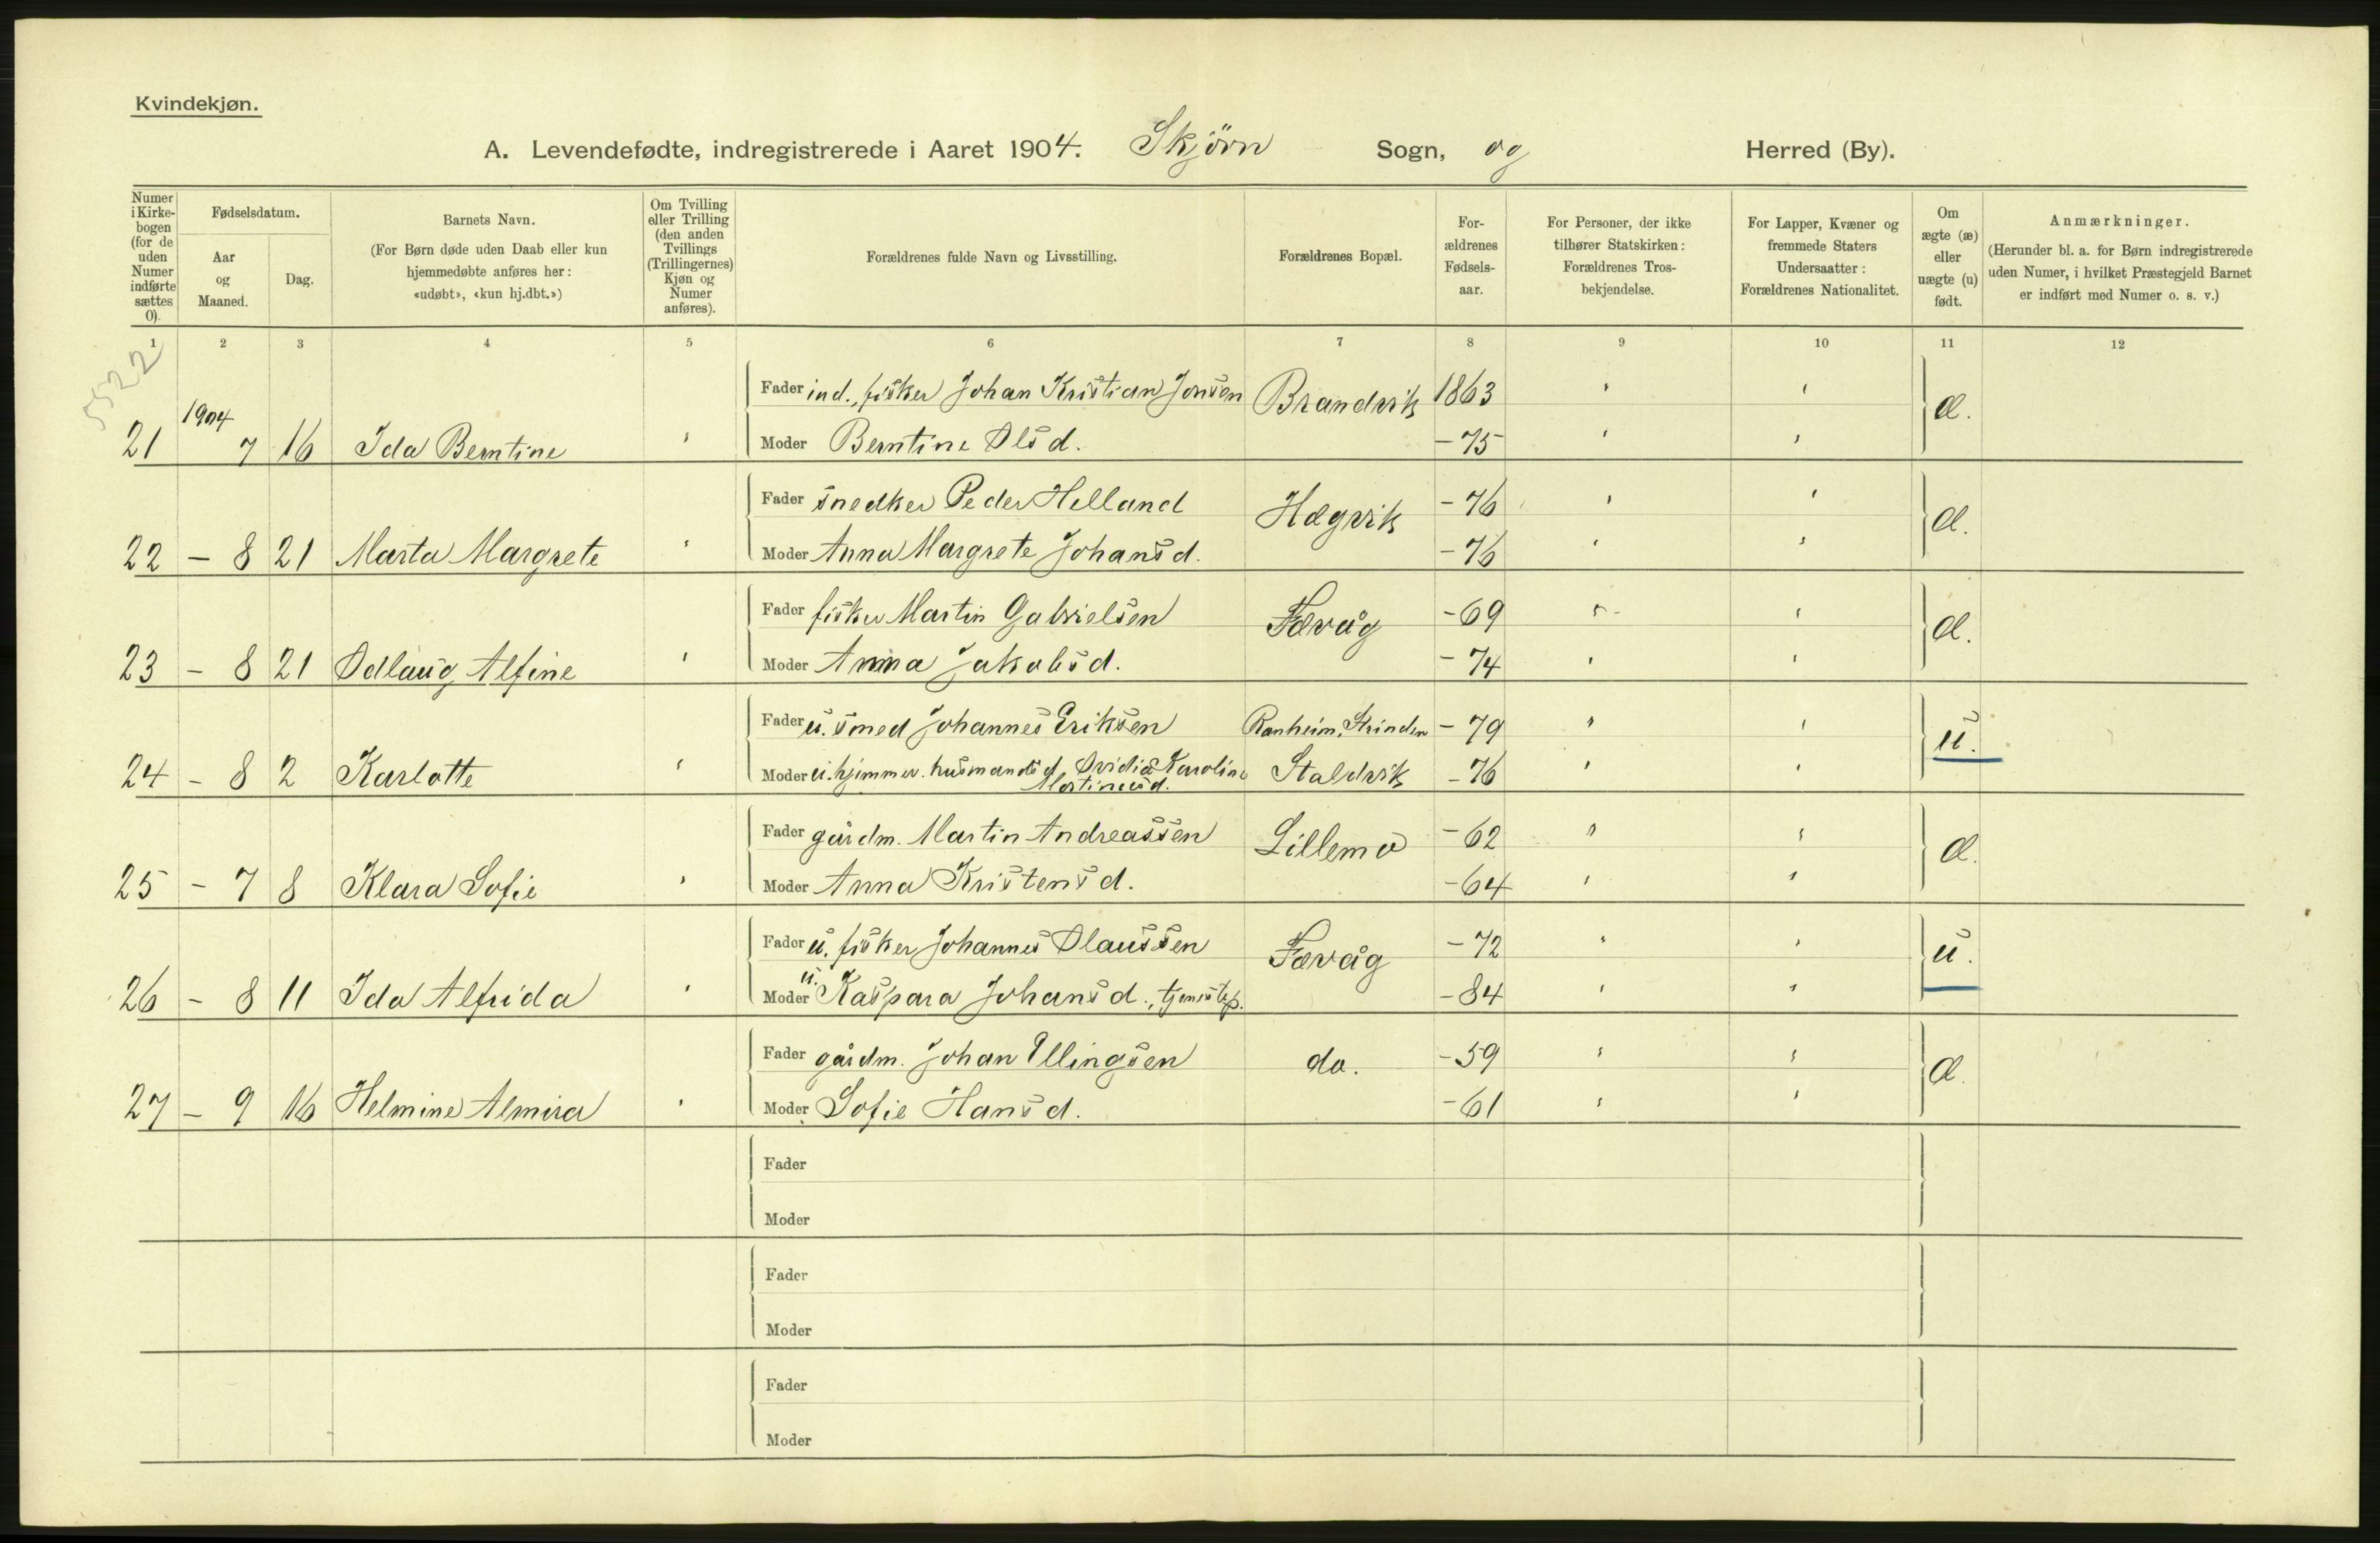 Kvindekjøn.
A. Levendefødte, indregistrerede i Aaret 1904. Skjörn Sogn, og Herred (By).
Numer i Kirke-bogen (for de uden Numer indførte sættes 0).
Fødselsdatum.
Aar og Maaned.
Dag.
Barnets Navn.
(For Børn døde uden Daab eller kun hjemmedøbte anføres her: «udøbt», «kun hj.dbt.»)
Om Tvilling eller Trilling (den anden Tvillings (Trillingernes) Kjøn og Numer anføres).
Forældrenes fulde Navn og Livsstilling.
Forældrenes Bopæl.
For-ældrenes Fødsels-aar.
For Personer, der ikke tilhører Statskirken: Forældrenes Tros-bekjendelse.
For Lapper, Kvæner og fremmede Staters Undersaatter: Forældrenes Nationalitet.
Om ægte (æ) eller uægte (u) født.
Anmærkninger.
(Herunder bl. a. for Børn indregistrerede uden Numer, i hvilket Præstegjeld Barnet er indført med Numer o. s. v.)
1 2 3 4 5 6 7 8 9 10 11 12
5522
Fader ind., fisker Johan Kristian Jonsen Brandvik 1863 æ.
1904
21 7 16 Ida Berntine Moder Berntine Olsd. - 75
Fader snedker Peder Helland Hægvik - 76 æ.
22 - 8 21 Marta Margrete Moder Anna Margrete Johansd. - 76
Fader fisker Martin Gabrielsen Fævåg - 69 æ.
23 - 8 21 Odlaug Alfine Moder Anna Jakobsd. - 74
Fader u. smed Johannes Eriksen Ranheim, Strinden - 79 u.
24 - 8 2 Karlotte Moder u. hjemmev. husmandsd. Ovidia Karoline Staldvik - 76
Mortinusd.
Fader gårdm. Martin Andreassen Lillemo - 62 æ.
25 - 7 8 Klara Sofie Moder Anna Kristensd. - 64
Fader u. fisker Johannes Olaussen Fævåg - 72 u.
26 - 8 11 Ida Alfrida Moder u. Kaspara Johansd., tjenestep. - 84
Fader gårdm. Johan Ellingsen do. - 59 æ.
27 - 9 16 Helmine Almira Moder Sofie Hansd. - 61
Fader
Moder
Fader
Moder
Fader
Moder